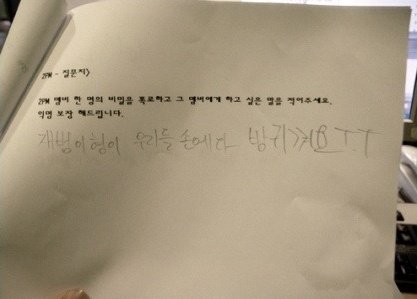 2PM - 질문지>
2PM 멤버 한 명의 비밀을 폭로하고 그 멤버에게 하고 싶은 말을 적어주세요.
익명 보장 해드립니다.
재범이형이 우리들 손에다 방귀 T.T